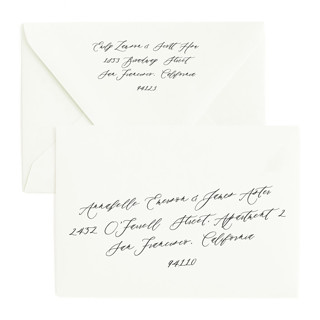 Carly Zamora & Scott Han
1833 Broadway Street
San Francisco, California
94123
Annabelle Emerson & James Apter
2432 O'Farrell Street, Apartment 2
San Francisco, California
94110